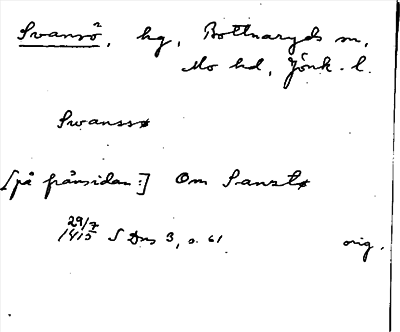 Svansö², hg, Bottnaryds sn,
Mo hd, Jönk. l.
Swanssø
[på frånsidan:] Om Sanstø
29/7 1415 SDns 3, s. 61 orig.